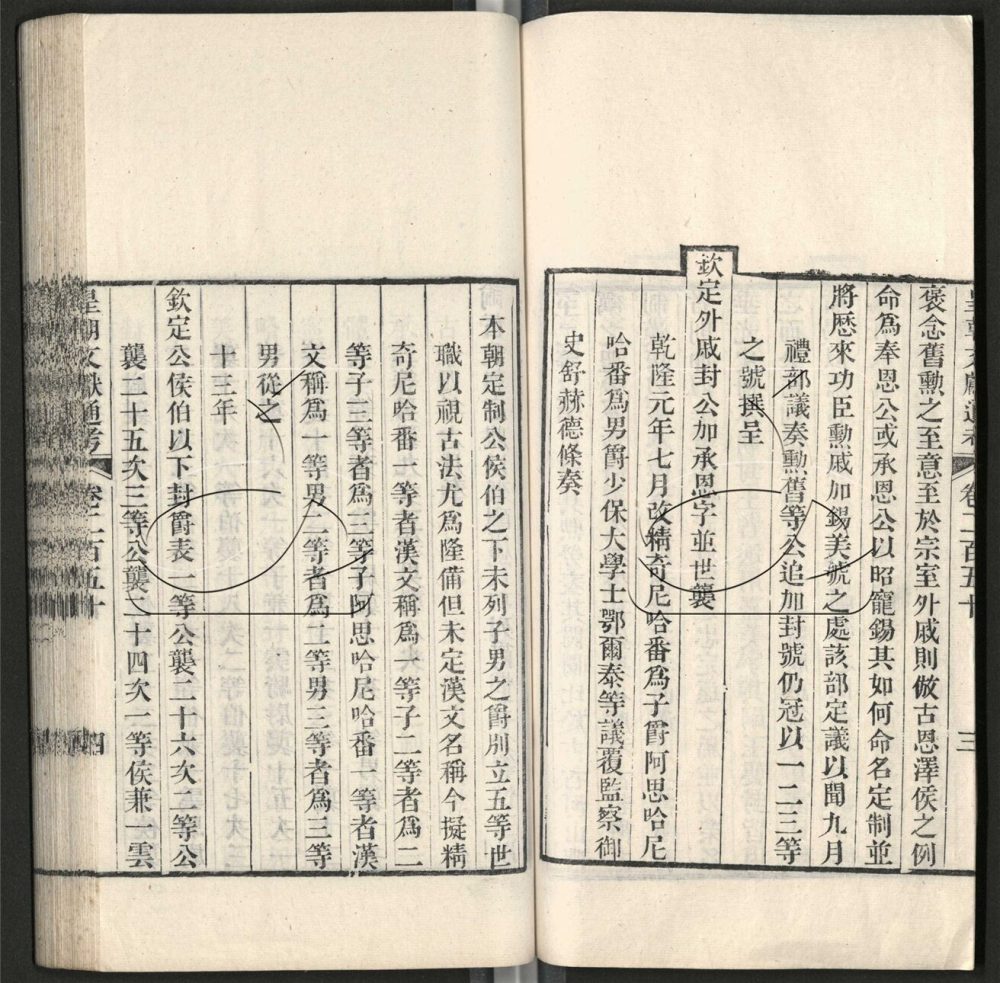 皇朝文獻通考 卷二百五十 三
褒念舊勳之至意至於宗室外戚則倣古恩澤侯之例
命爲奉恩公或承恩公以昭寵錫其如何命名定制並
將歷來功臣勳戚加錫美號之處該部定議以聞九月
禮部議奏勳舊等公追加封號仍冠以一二三等
之號撰呈
欽定外戚封公加承恩字並世襲
乾隆元年七月改精奇尼哈番爲子爵阿思哈尼
哈番爲男爵少保大學士鄂爾泰等議覆監察御
史舒赫德條奏
本朝定制公侯伯之下未列子男之爵別立五等世
職以視古法尤爲隆備但未定漢文名稱今擬精
奇尼哈番一等者漢文稱爲一等子二等者爲二
等子三等者爲三等子阿思哈尼哈番一等者漢
文稱爲一等男二等者爲二等男三等者爲三等
男從之
十三年
欽定公侯伯以下封爵表一等公襲二十六次二等公
襲二十五次三等公襲二十四次一等侯兼一雲
皇朝文獻通考 卷二百五十 四